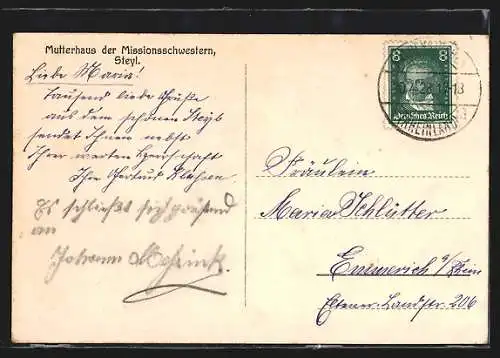 Mutterhaus der Missionsschwestern,
Steyl.
Liebe Maria!
Tausend liebe Grüße
aus dem schönen Steyl
sendet Ihnen nebst
Ihrer werten Herrschaft
Ihre Gertrud Klahsen.
Es schließt sich grüßend
an
Johann
8 8
Deutsches Reich
28
(RHEINLAND)
Fräulein
Maria Schlütter
Emmerich a/Rhein
Eltener Landstr 206